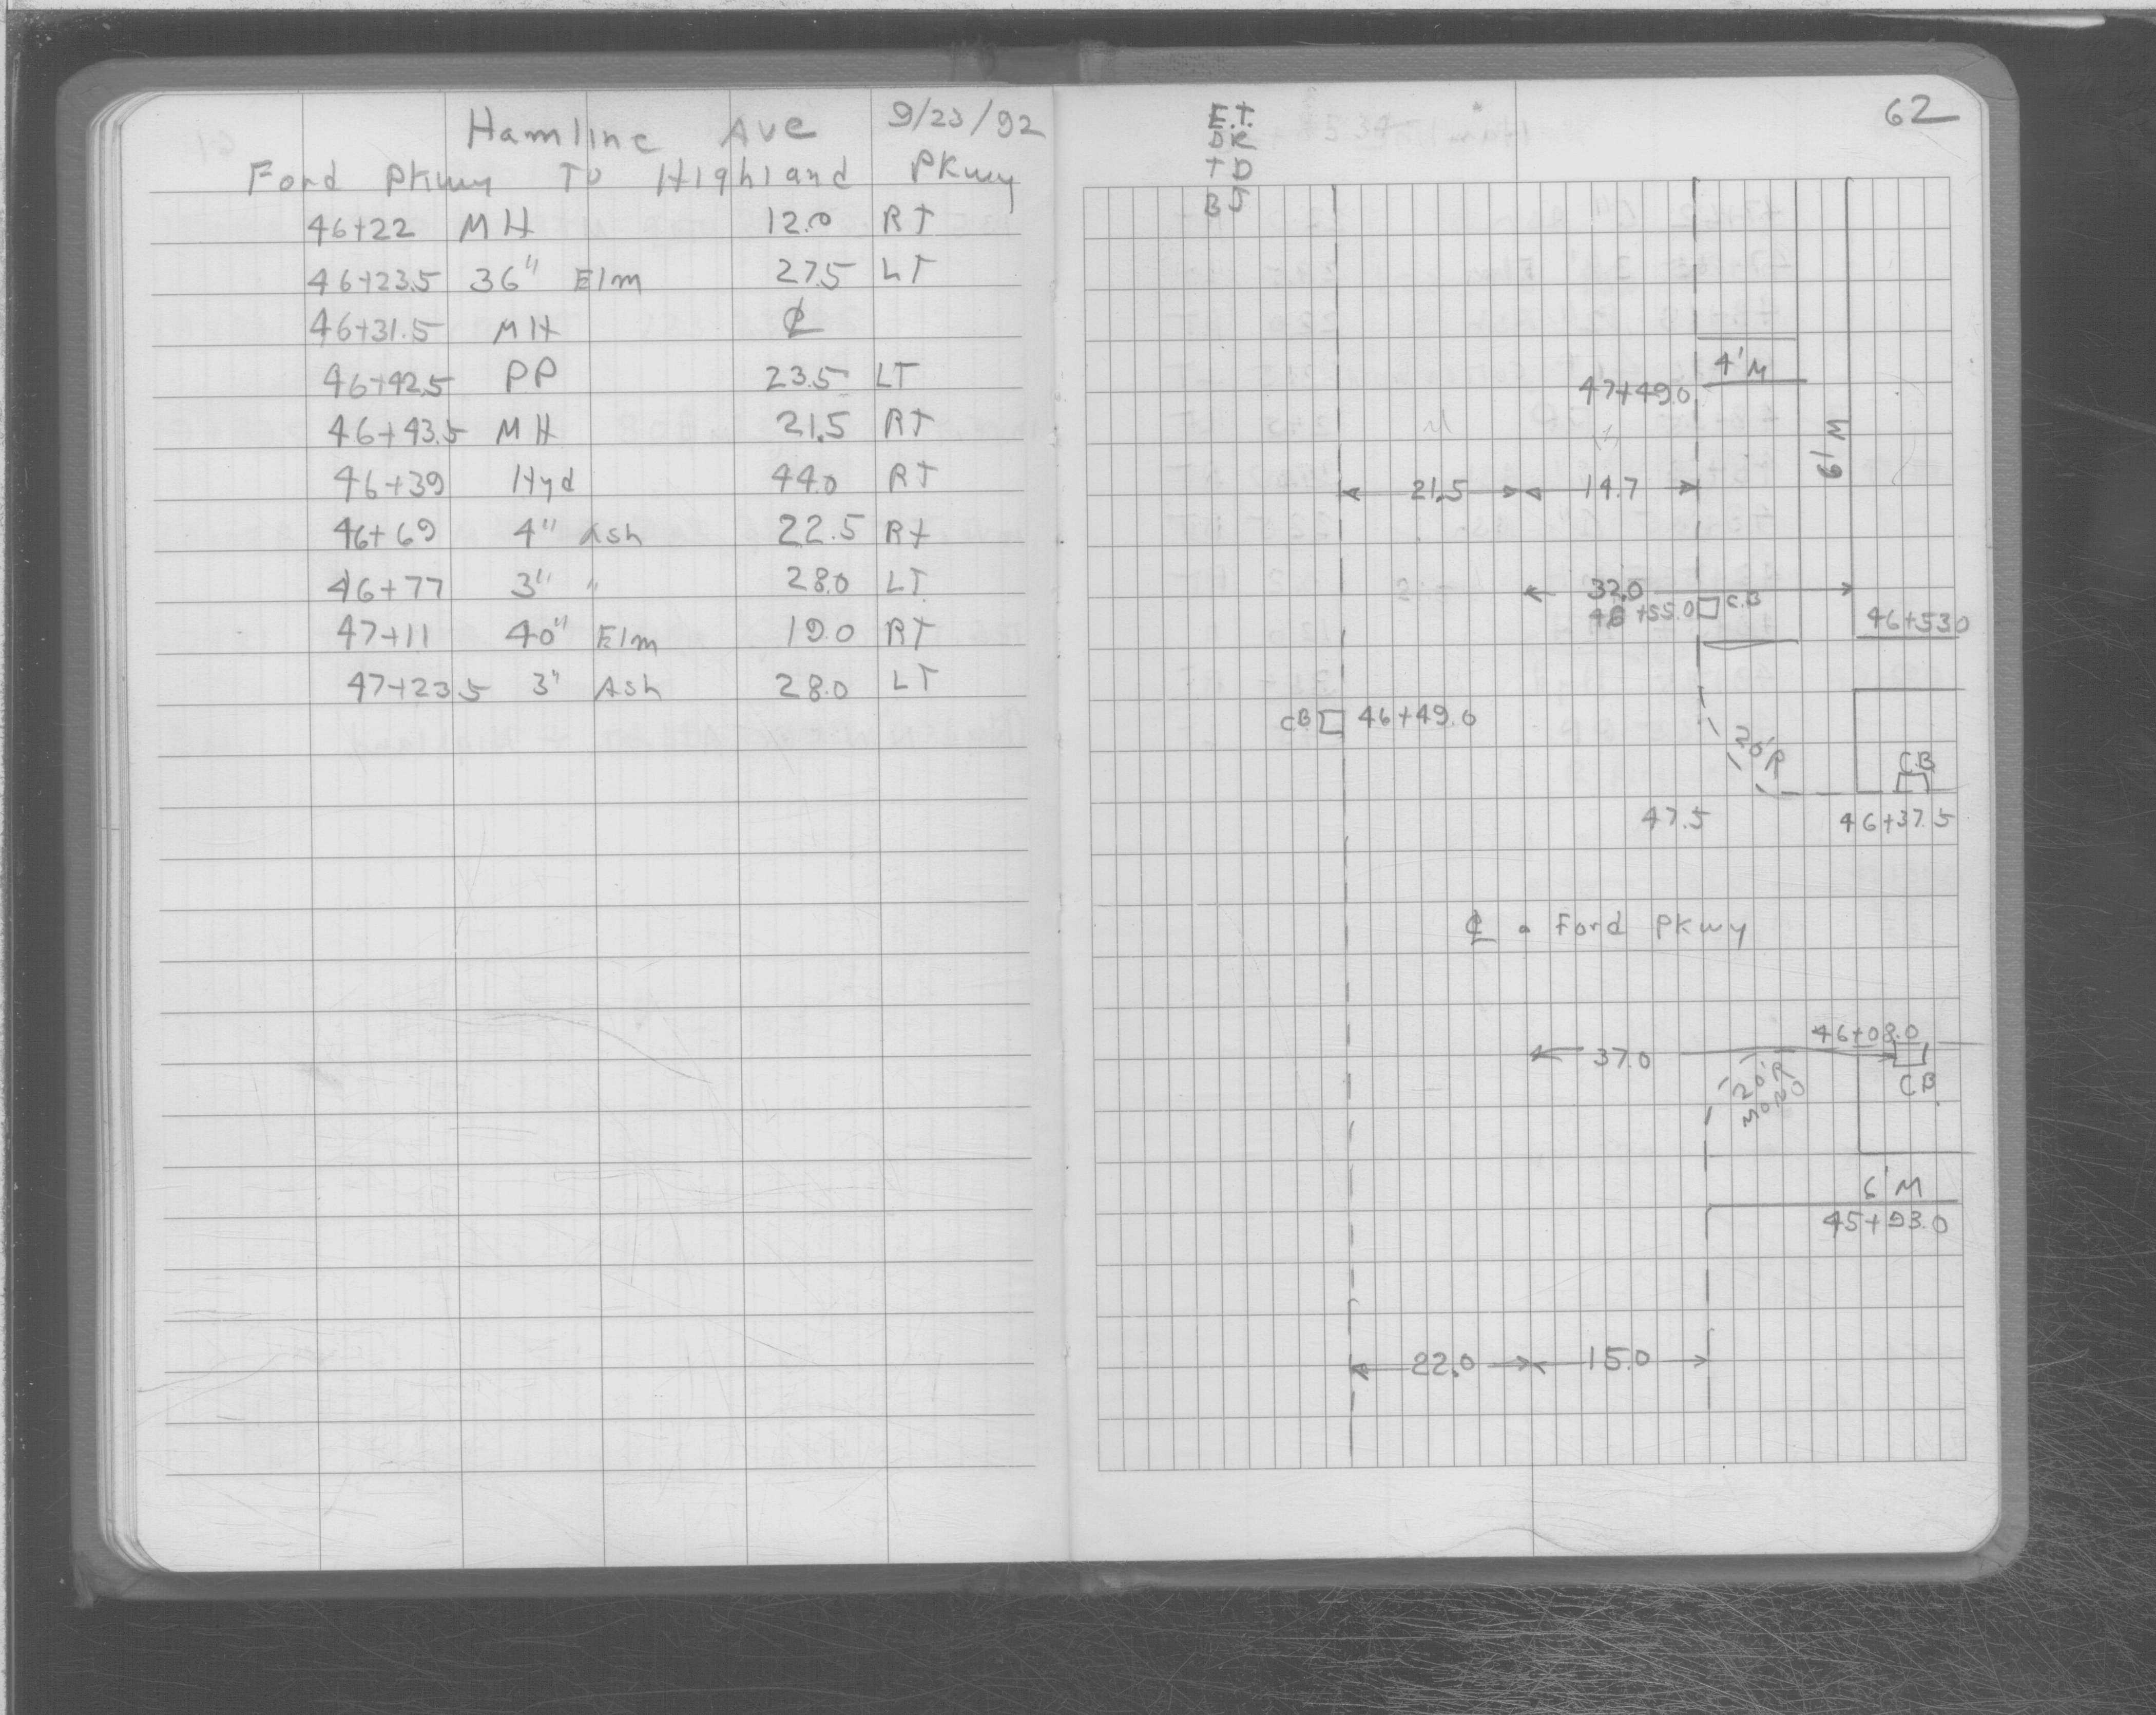 Hamline Ave 9/23/92
Ford Pkwy To Highland Pkwy
46+22 MH 12.0 RT
46+23.5 36" Elm 27.5 LT
46+31.5 MH ℄
46+42.5 PP 23.5 LT
46+43.5 MH 21.5 RT
46+39 Hyd 44.0 RT
46+69 4" Ash 22.5 Rt
46+77 3" " 28.0 LT
47+11 40" Elm 19.0 RT
47+23.5 3" Ash 28.0 LT
62
E.T.
DR
TD
BJ
4' M
47+49.0
6' M
21.5 14.7
32.0
46+55.0 C.B
46+53.0
CB 46+49.0
20' R
C.B
47.5 46+37.5
℄ Ford Pkwy
46+08.0
37.0
20' R
MONO
C.B
6' M
45+93.0
22.0 15.0